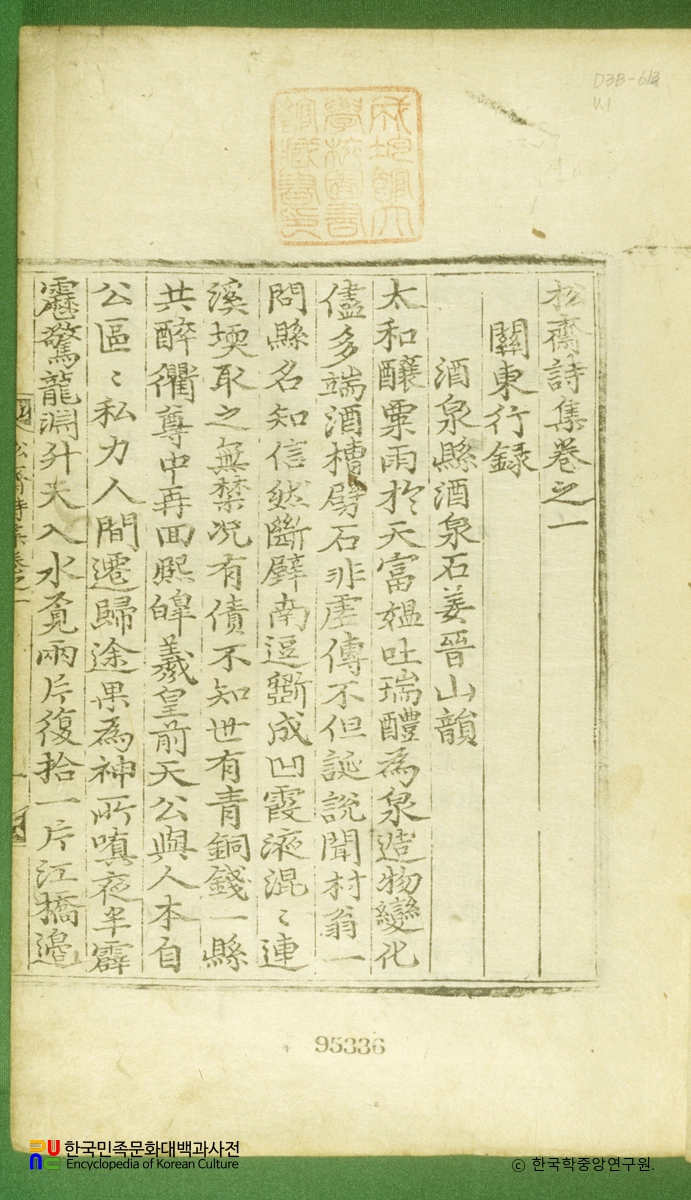 D3B-613
V.1
松齋詩集卷之一
關東行録
酒泉縣酒泉石姜晉山韻
太和釀粟雨扵天富媼吐瑞醴為泉造物變化
儘多端酒槽劈石非虛傳不但誕說聞村翁一
問縣名知信然斷壁南逗斲成凹霞液混〻連
溪堧取之無禁况有債不知世有青銅錢一縣
共醉衢尊中再回熙皥羲皇前天公與人本自
公區〻私力人間遷歸途果為神所嗔夜半霹
靂驚龍淵升天入水覓兩片復拾一片江橋邊
松齋詩集卷之一
95336
한국민족문화대백과사전
Encyclopedia of Korean Culture
ⓒ 한국학중앙연구원.